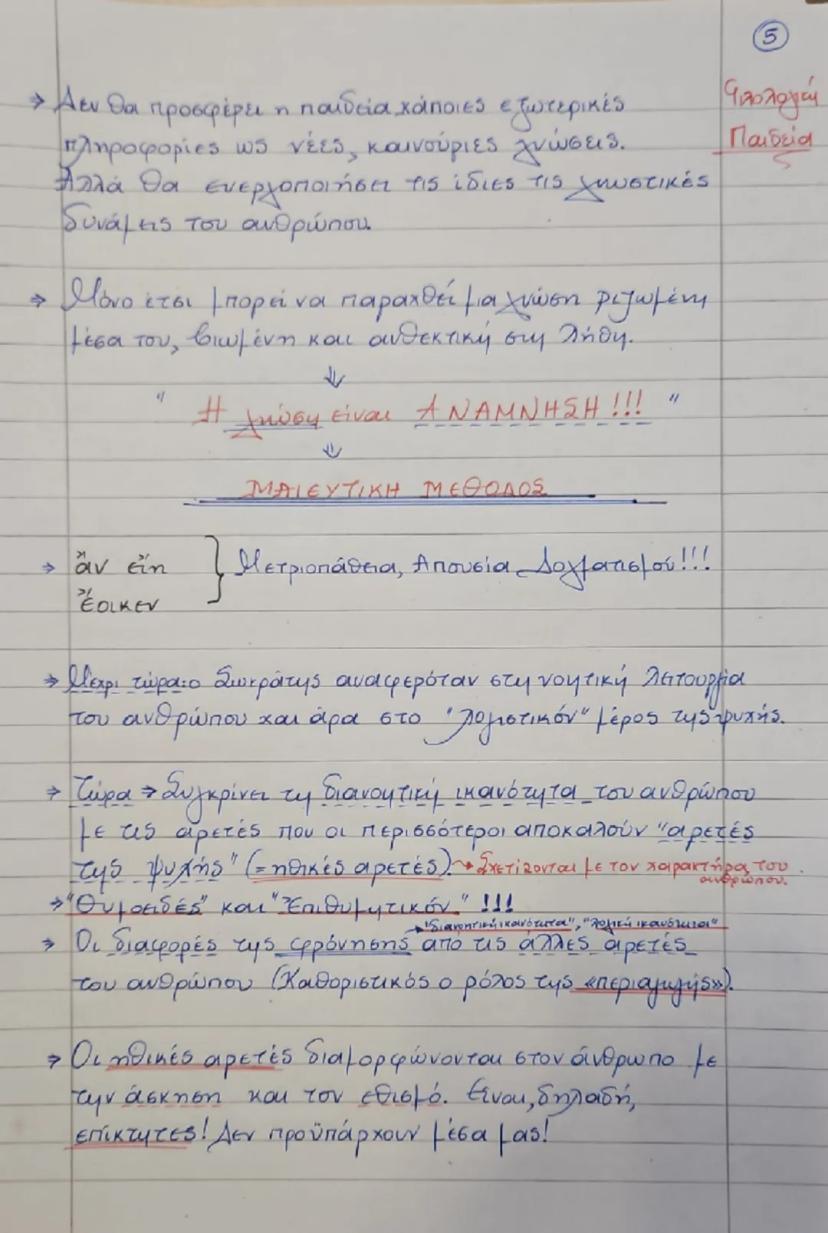 5
→ Δεν θα προσφέρει η παιδεία κάποιες εξωτερικές
πληροφορίες ως νέες, καινούριες γνώσεις.
Αλλά θα ενεργοποιήσει τις ίδιες τις γνωστικές
δυνάμεις του ανθρώπου.
Παιδεία
→ Μόνο έτσι μπορεί να παραχθεί μια γνώση ριζωμένη
μέσα του, βιωμένη και ανθεκτική στη λήθη.
↓
" Η γνώση είναι ΑΝΑΜΝΗΣΗ!!! "
↓
ΜΑΙΕΥΤΙΚΗ ΜΕΘΟΔΟΣ
→ ἂν εἴη } Μετριοπάθεια, Απουσία Δογματισμού!!!
Ἔοικεν
→ Μέχρι τώρα: ο Σωκράτης αναφερόταν στη νοητική λειτουργία
του ανθρώπου και άρα στο "λογιστικόν" μέρος της ψυχής.
→ Τώρα → Συγκρίνει τη διανοητική ικανότητα του ανθρώπου
με τις αρετές που οι περισσότεροι αποκαλούν "αρετές
της ψυχής" (= ηθικές αρετές) → Σχετίζονται με τον χαρακτήρα του
ανθρώπου.
→ "Θυμοειδές" και "Επιθυμητικόν" !!!
→ "διανοητική ικανότητα", "λογική ικανότητα"
→ Οι διαφορές της φρόνησης από τις άλλες αρετές
του ανθρώπου (Καθοριστικός ο ρόλος της «περιαγωγής»).
→ Οι ηθικές αρετές διαμορφώνονται στον άνθρωπο με
την άσκηση και τον εθισμό. Είναι, δηλαδή,
επίκτητες! Δεν προϋπάρχουν μέσα μας!